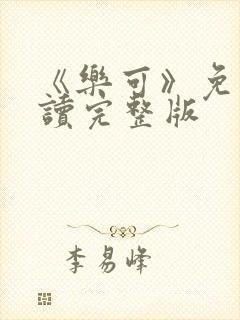 《樂可》免
讀完整版
李易峰